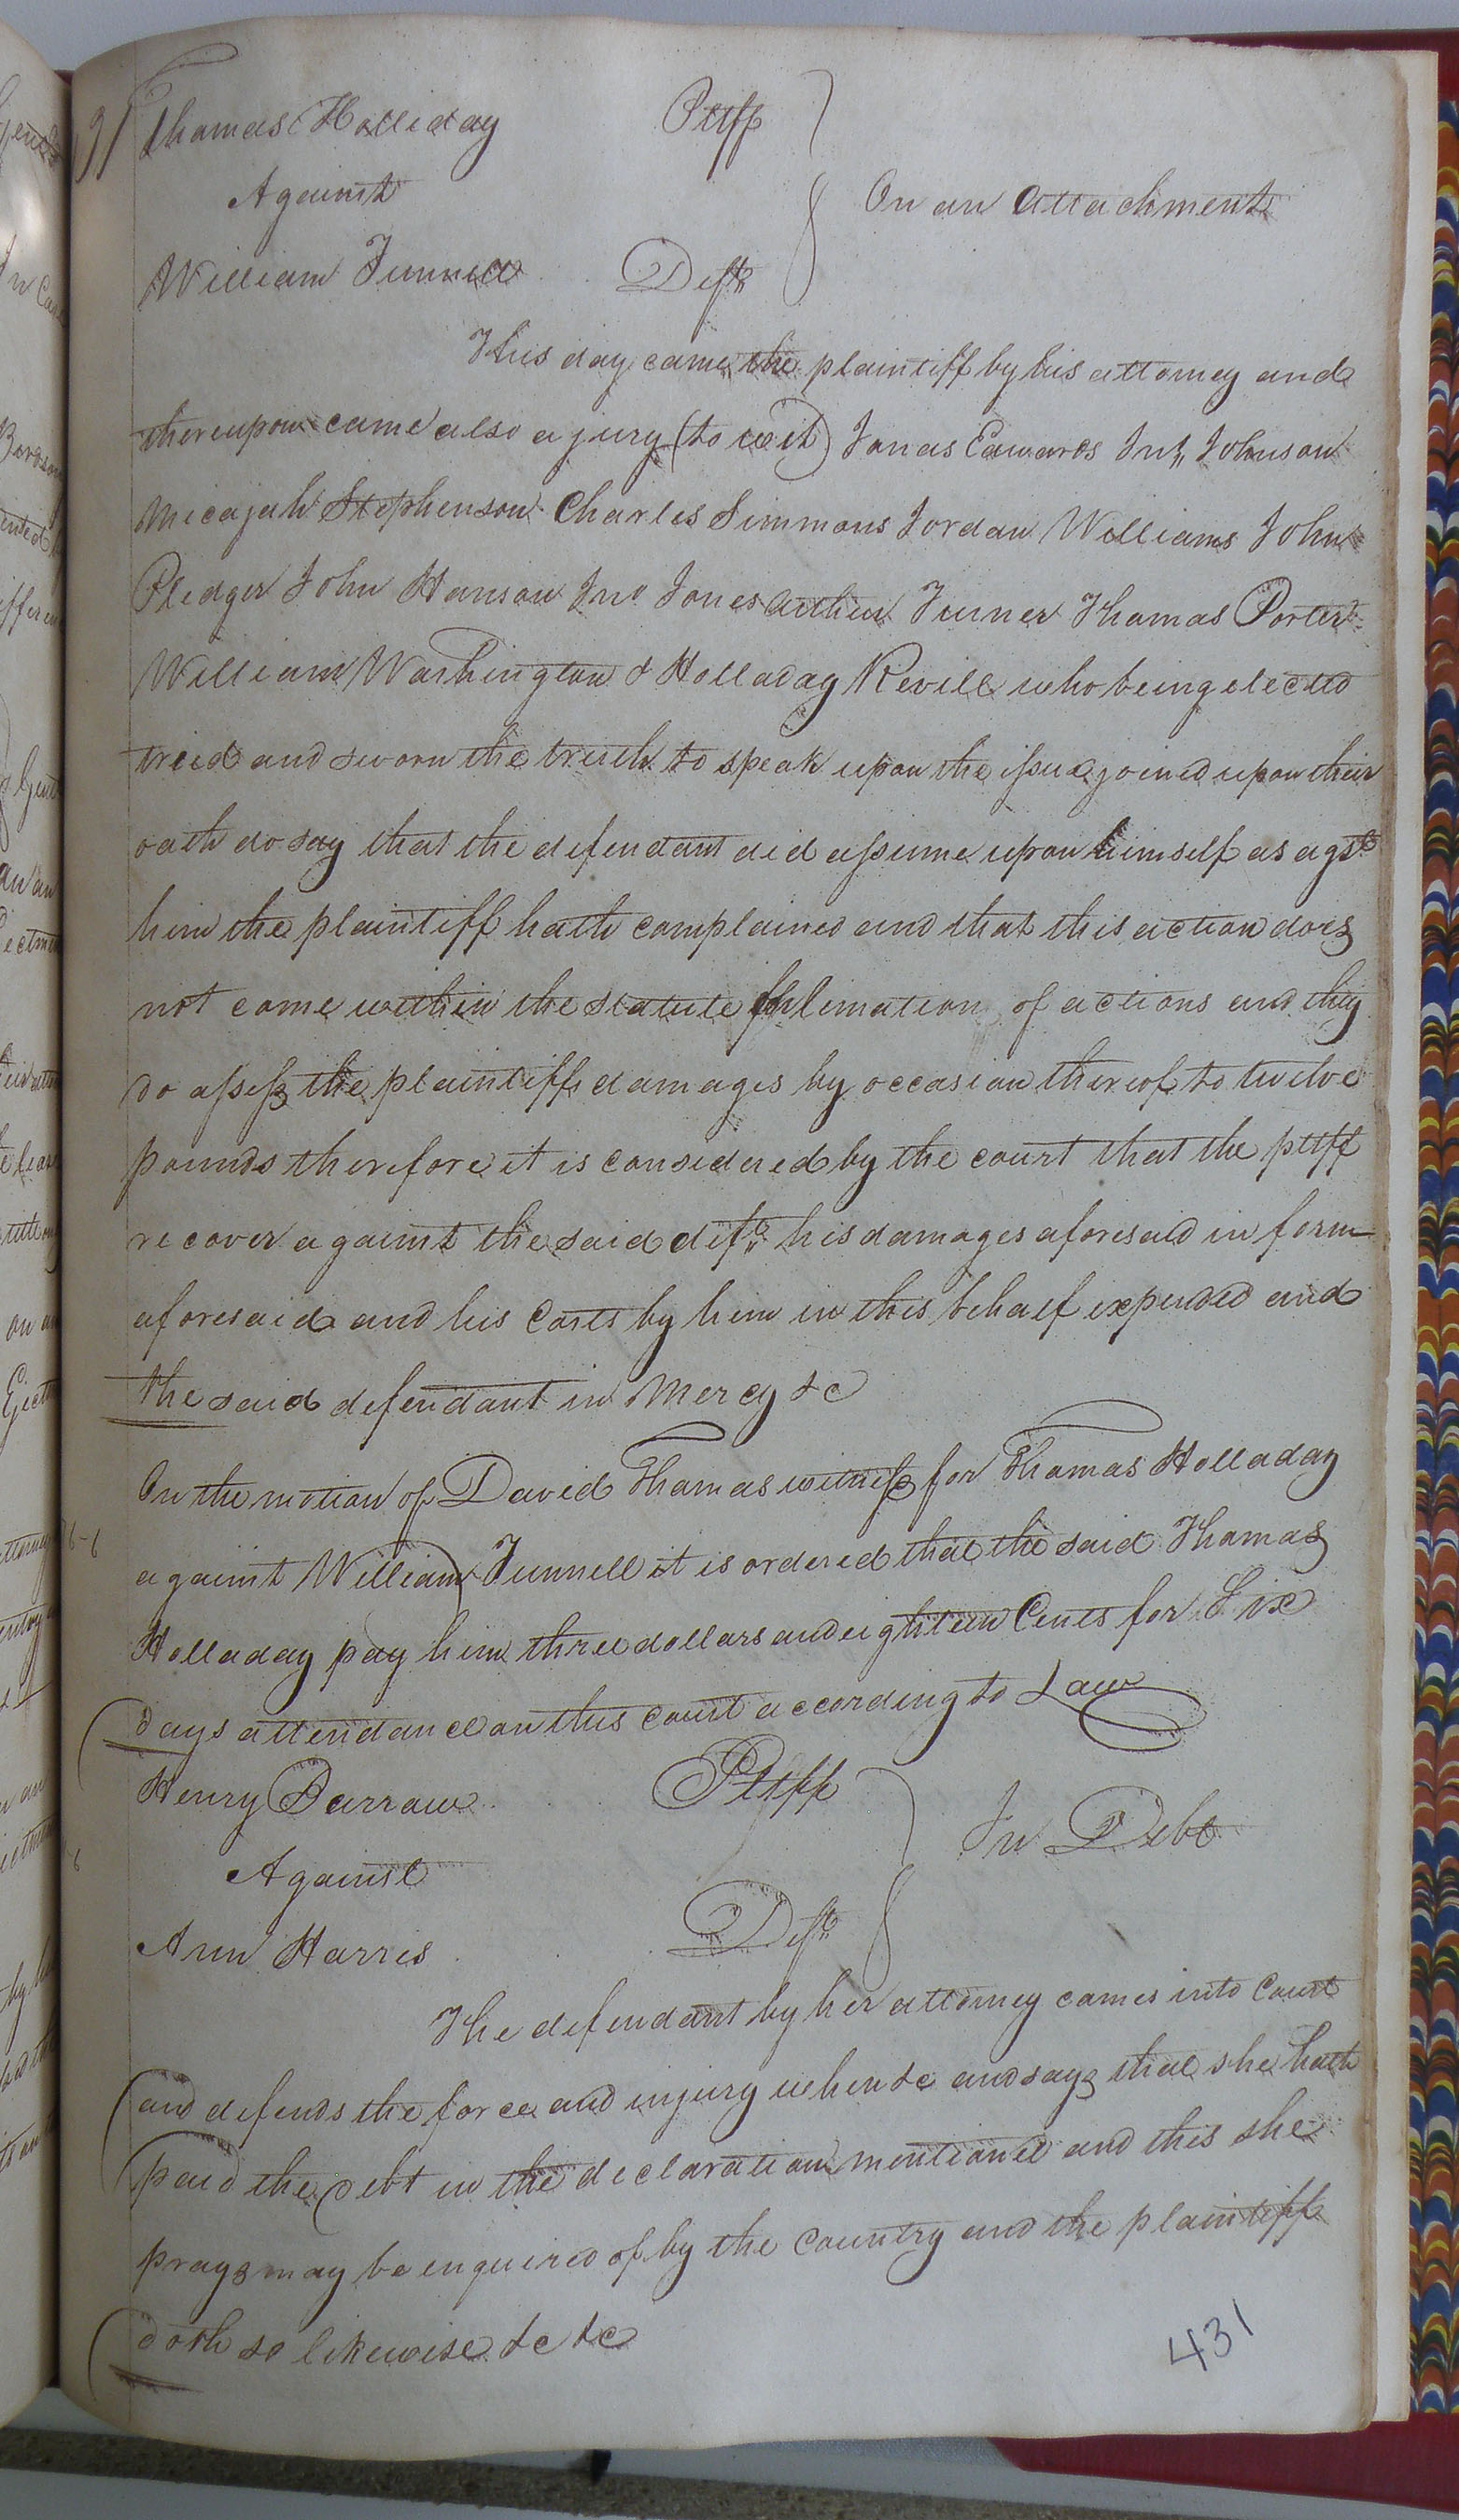 Thomas Holliday Pltff
Against
On an attachment
William Tunnell Deft
This day came the plaintiff by his attorney and
thereupon came also a jury (to wit) Jonas Edwards Johnson
Micajah Stephenson Charles Simmons Jordan Williams John
Pledger John Hanson Jno Jones Arthur Turner Thomas Porter
William Washington & Holladay Revill who being elected
tried and sworn the truth to speak upon the issue joined upon their
oath do say that the defendant did assume upon himself as agst
him the plaintiff hath complained and that this action does
not come within the statute limation of actions and they
do assess the plaintiffs damages by occasion thereof to twelve
pounds therefore it is considered by the court that the pltff
recover against the said deft his damages aforesaid in form
aforesaid and his Costs by him in this behalf expended and
the said defendant in Mercy &c
On the motion of David Thomas witness for Thomas Holladay
against William Tunnell it is ordered that the said Thomas
Holladay pay him three dollars and eighteen Cents for Six
days attendance on this court according to Law
Henry Barraw Pltff
In Debt
Against
Ann Harris Deft
The defendant by her attorney comes into Court
and defends the force and injury when &c and says that she hath
paid the debt in the declaration mentioned and this she
prays may be enquired of by the Country and the plaintiff
doth so likewise &c &c
431